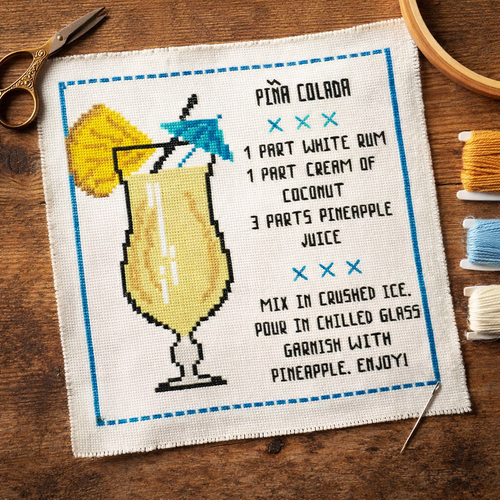 PIÑA COLADA
1 PART WHITE RUM
1 PART CREAM OF
COCONUT
3 PARTS PINEAPPLE
JUICE
MIX IN CRUSHED ICE.
POUR IN CHILLED GLASS
GARNISH WITH
PINEAPPLE. ENJOY!